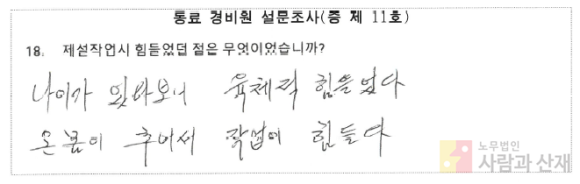 동료 경비원 설문조사(증 제 11호)
18. 제설작업시 힘들었던 점은 무엇이었습니까?
나이가 있다보니 육체적 힘들었다
온몸이 추어서 작업이 힘들다
노무법인
사람과 산재